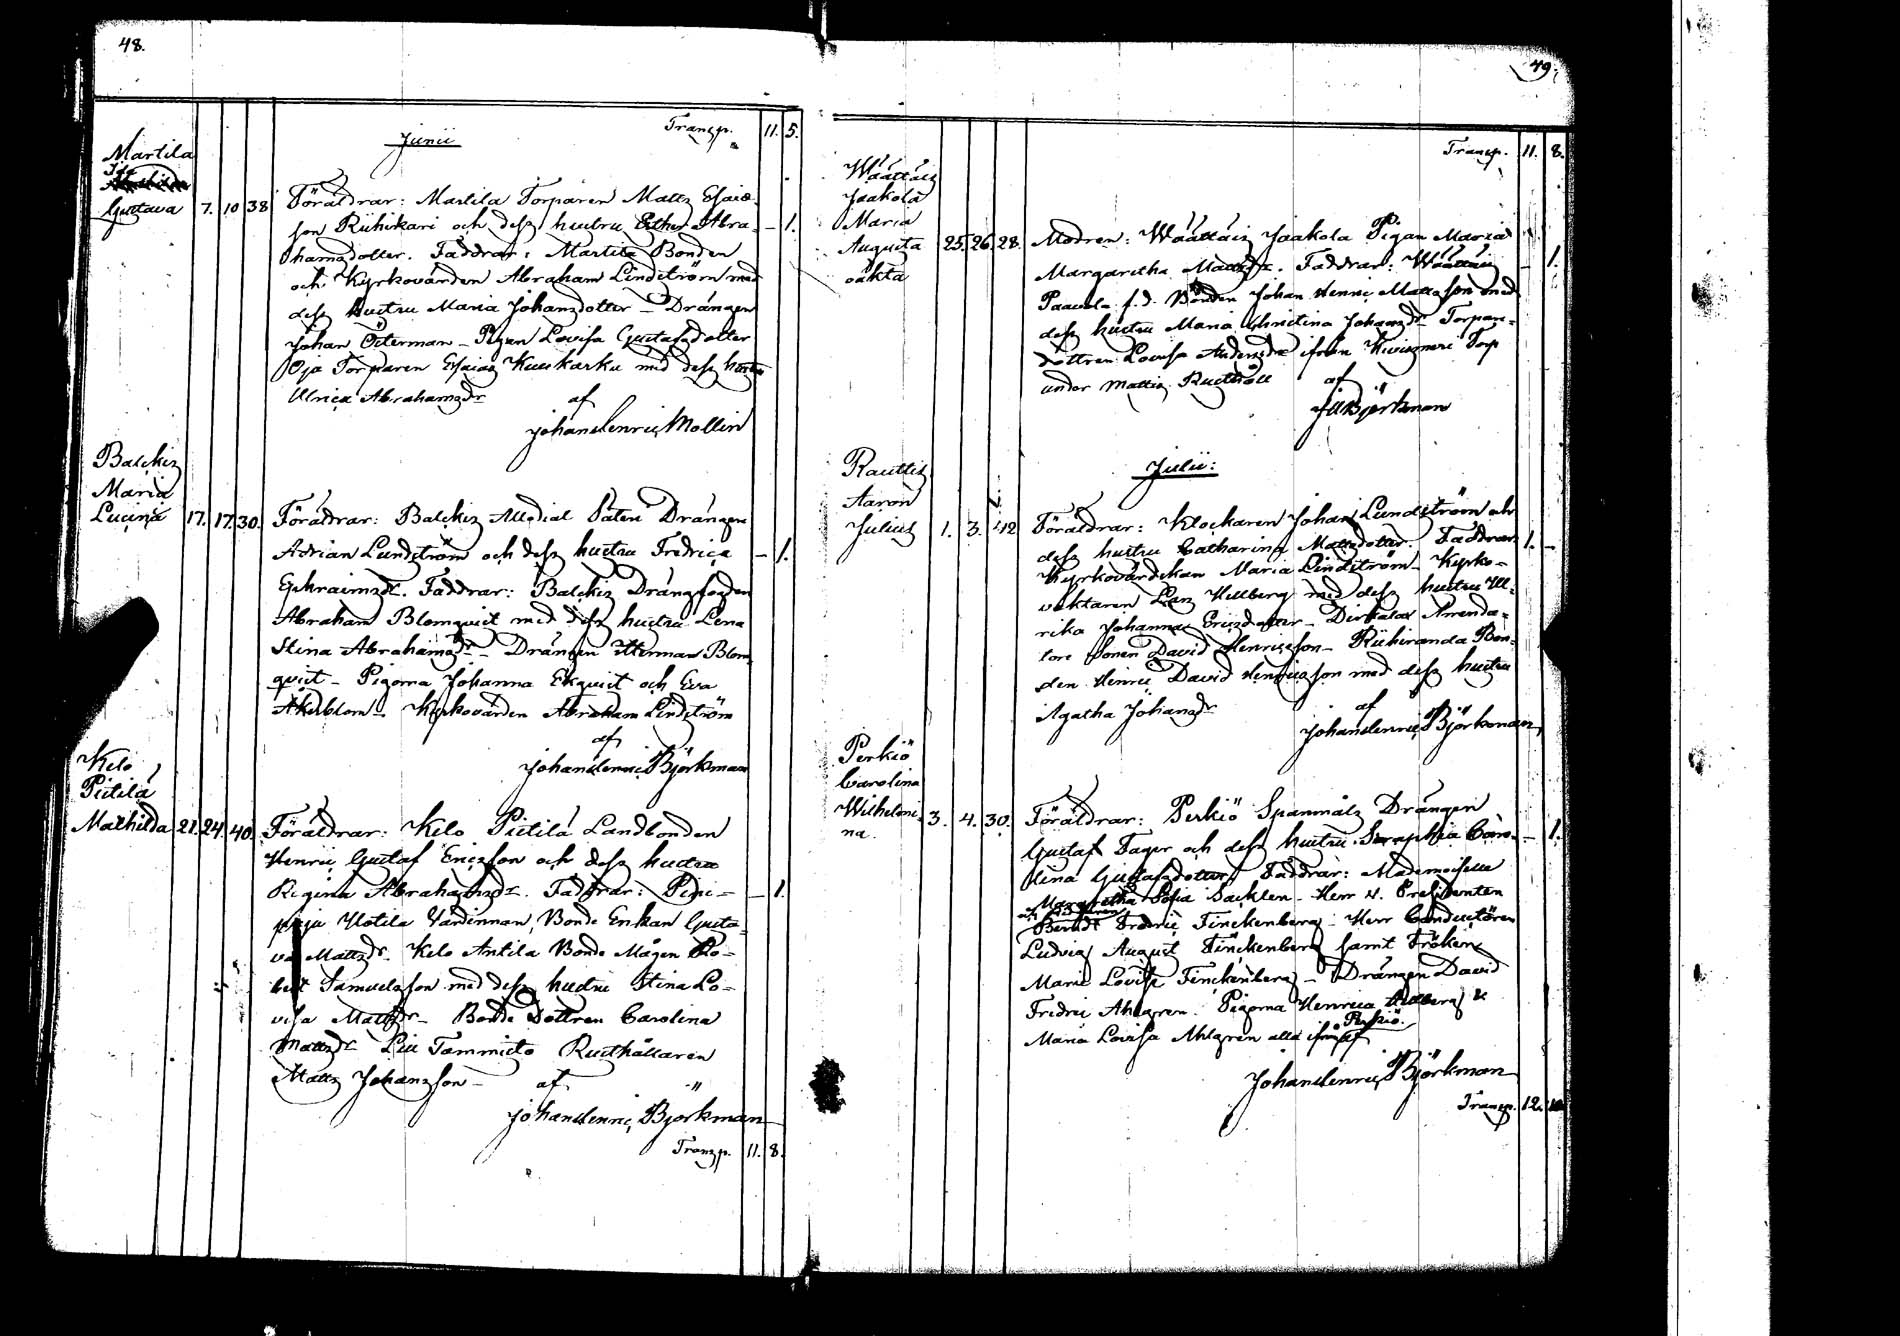 48.
Junii
Transp. 11. 5.
Martila
Ida
Gustava 7. 10 38
Föräldrar: Martila Torparen Matts Esaias-
son Riihikari och dess hustru Esther Abra- – 1.
hamsdotter. Faddrar: Martila Bonden
och Kyrkovärden Abraham Lindström med
dess hustru Maria Johansdotter – Drängen
Johan Österman – Pigan Lovisa Gustafsdotter
Oja Torparen Esaias Kuuskarku med dess hustru
Ulrica Abrahamsdr
af
Johan Henric Mollin
Balckis
Maria
Lucina 17. 17. 30.
Föräldrar: Balckis Allodial Säteri Drängen
Adrian Lundström och dess hustru Fredrica – 1.
Ephraimsdr. Faddrar: Balckis Drängfogden
Abraham Blomqvist med dess hustru Lena
Stina Abrahamsdr – Drängen Herman Blom-
qvist – Pigorna Johanna Ekqvist och Eva
Åkerblom – Kyrkovärden Abraham Lindström
af
Johan Henric Björkman
Kelo
Pietilä
Mathilda 21. 24. 40.
Föräldrar: Kelo Pietilä Landbonden
Henric Gustaf Ericsson och dess hustru
Regina Abrahamsdr. Faddrar: Pini- – 1.
Uotila Värdinnan, Bonde Enkan Gusta-
va Mattsdr. Kelo Antila Bonde Mågen Ro-
bert Samuelsson med dess hustru Stina Lo-
visa Mattsdr – Bonde Dottren Carolina
Mattsdr Liu Tammisto Rusthållaren
Matts Johansson –
af
Johan Henric Björkman
Transp. 11. 8.
49.
Transp. 11. 8.
Wäättäis
Jaakola
Maria
Augusta 25. 26. 28.
oäkta
Modren: Wäättäis Jaakola Pigan Maria
Margaretha Mattsdr. Faddrar: Wäättäis – 1.
Paavola f.d. Bonden Johan Henric Mattsson med
dess hustru Maria Christina Johansdr – Torpare-
dottren Lovisa Andersdr ifrån Kivismeri Torp
under Mattis Rusthåll
af
JHBjörkman
Julii:
Rauttis
Aaron
Julius 1. 3. 42
Föräldrar: Klockaren Johan Lundström och
dess hustru Catharina Mattsdotter. Faddrar 1. –
Kyrkovärdskan Maria Lindström – Kyrko-
vaktaren Lars Hellberg med dess hustru Ul-
rika Johanna Ericsdotter – Dirkala Arrenda-
tore Sonen David Henricsson – Riihiranda Bon-
den Henric David Henricsson med dess hustru
Agatha Johansdr
af
Johan Henric Björkman
Perkiö
Carolina
Wilhelmi-
na. 3. 4. 30.
Föräldrar: Perkiö Spanmåls Drängen
Gustaf Fager och dess hustru Seraphia Caro- – 1.
lina Gustafsdotter Faddrar: Mademoiselle
Margaretha Sofia Sacklen – Herr v. Presidenten
Berndt Fredric Finckenberg – Herr Conducteuren
Ludvig August Finckenberg samt Fröken
Maria Lovisa Finckenberg – Drängen David
Fredric Ahlgren. Pigorna Henrica Hedberg &
Maria Lovisa Ahlgren alla ifrån Perkiö.
af
Johan Henric Björkman
Transp. 12.